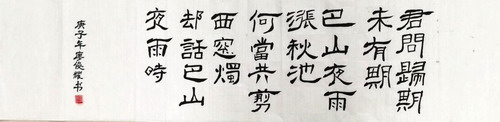 君問歸期
未有期
巴山夜雨
漲秋池
何當共剪
西窓燭
却話巴山
夜雨時
庚子年廖俊耀书